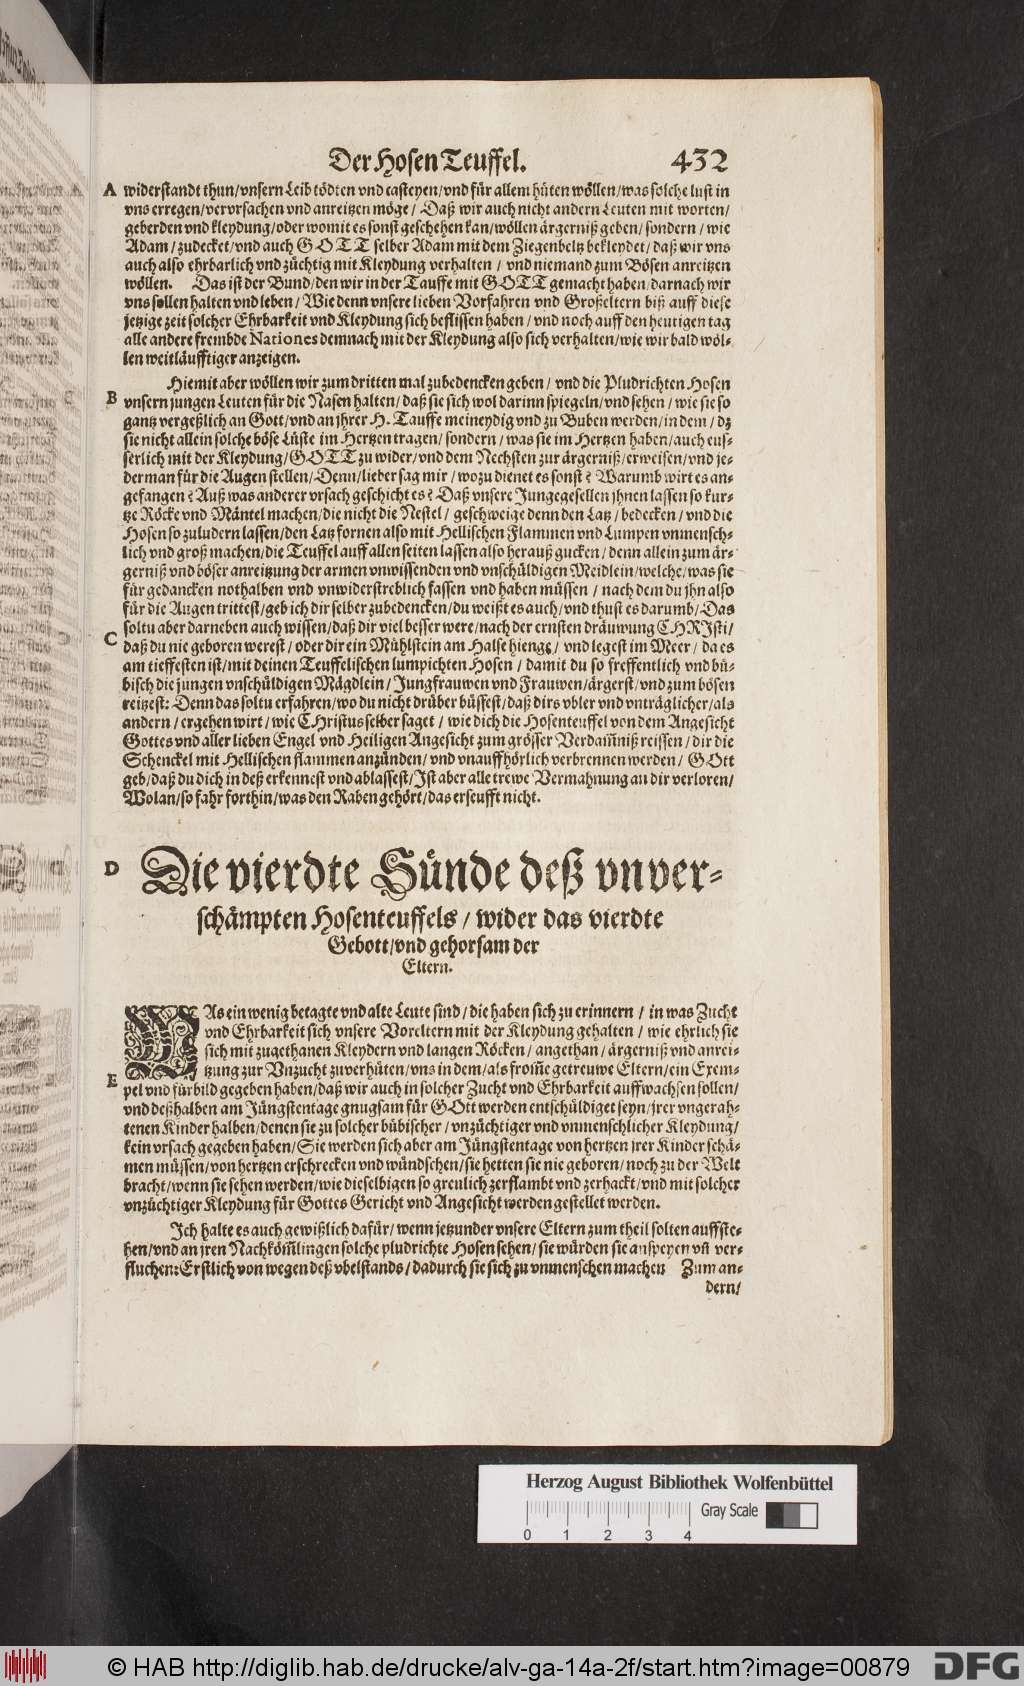 Der Hosen Teuffel. 432
A widerstandt thun/vnsern Leib tödten vnd casteyen/vnd für allem hüten wöllen/was solche lust in
vns erregen/vervrsachen vnd anreitzen möge/ Daß wir auch nicht andern Leuten mit worten/
geberden vnd kleydung/oder womit es sonst geschehen kan/wöllen ärgerniß geben/sondern/ wie
Adam/zudecket/vnd auch GOTT selber Adam mit dem Ziegenbeltz bekleydet/daß wir vns
auch also ehrbarlich vnd züchtig mit Kleydung verhalten/ vnd niemand zum Bösen anreitzen
wöllen. Das ist der Bund/den wir in der Tauffe mit GOTT gemacht haben/darnach wir
vns sollen halten vnd leben/Wie denn vnsere lieben Vorfahren vnd Großeltern biß auff diese
jetzige zeit solcher Ehrbarkeit vnd Kleydung sich beflissen haben/vnd noch auff den heutigen tag
alle andere frembde Nationes demnach mit der Kleydung also sich verhalten/wie wir bald wöl-
len weitläufftiger anzeigen.
Hiemit aber wöllen wir zum dritten mal zubedencken geben/ vnd die Pludrichten Hosen
B vnsern jungen Leuten für die Nasen halten/daß sie sich wol darinn spiegeln/vnd sehen/ wie sie so
gantz vergeßlich an Gott/vnd an jhrer H. Tauffe meineydig vnd zu Buben werden/in dem/ dz
sie nicht allein solche böse Lüste im Hertzen tragen/ sondern/ was sie im Hertzen haben/auch eus-
serlich mit der Kleydung/GOTT zu wider/vnd dem Nechsten zur ärgerniß/erweisen/vnd je-
derman für die Augen stellen/Denn/lieber sag mir/ wozu dienet es sonst? Warumb wirt es an-
gefangen? Auß was anderer vrsach geschicht es? Daß vnsere Jungegesellen jhnen lassen so kur-
tze Röcke vnd Mäntel machen/die nicht die Nestel/ geschweige denn den Latz/bedecken/vnd die
Hosen so zuludern lassen/den Latz fornen also mit Hellischen Flammen vnd Lumpen vnmensch-
lich vnd groß machen/die Teuffel auff allen seiten lassen also herauß gucken/denn allein zum är-
gerniß vnd böser anreitzung der armen vnwissenden vnd vnschüldigen Meidlein/welche/was sie
für gedancken nothalben vnd vnwiderstreblich fassen vnd haben müssen/ nach dem du jhn also
für die Augen trittest/geb ich dir selber zubedencken/du weißt es auch/vnd thust es darumb/Das
soltu aber darneben auch wissen/daß dir viel besser were/nach der ernsten dräuwung CHRJsti/
C daß du nie geboren werest/oder dir ein Mühlstein am Halse hienge/ vnd legest im Meer/da es
am tieffesten ist/mit deinen Teuffelischen lumpichten Hosen/ damit du so freffentlich vnd bü-
bisch die jungen vnschüldigen Mägdlein/Jungfrauwen vnd Frauwen/ärgerst/vnd zum bösen
reitzest: Denn das soltu erfahren/wo du nicht drüber büssest/daß dirs vbler vnd vnträglicher/als
andern/ergehen wirt/wie CHristus selber saget/ wie dich die Hosenteuffel von dem Angesicht
Gottes vnd aller lieben Engel vnd Heiligen Angesicht zum grösser Verdam̃niß reissen/dir die
Schenckel mit Hellischen flammen anzünden/vnd vnauffhörlich verbrennen werden/ GOtt
geb/daß du dich in deß erkennest vnd ablassest/Jst aber alle trewe Vermahnung an dir verloren/
Wolan/so fahr forthin/was den Raben gehört/das erseufft nicht.
D Die vierdte Sünde deß vnver-
schämpten Hosenteuffels/wider das vierdte
Gebott/vnd gehorsam der
Eltern.
WAs ein wenig betagte vnd alte Leute sind/die haben sich zu erinnern/ in was Zucht
vnd Ehrbarkeit sich vnsere Voreltern mit der Kleydung gehalten/ wie ehrlich sie
sich mit zugethanen Kleydern vnd langen Röcken/angethan/ärgerniß vnd anrei-
tzung zur Vnzucht zuverhüten/vns in dem/als from̃e getreuwe Eltern/ein Exem-
E pel vnd fürbild gegeben haben/daß wir auch in solcher Zucht vnd Ehrbarkeit auffwachsen sollen/
vnd deßhalben am Jüngstentage gnugsam für GOtt werden entschüldiget seyn/jrer vngerah-
tenen Kinder halben/denen sie zu solcher bübischer/ vnzüchtiger vnd vnmenschlicher Kleydung/
kein vrsach gegeben haben/Sie werden sich aber am Jüngstentage von hertzen jrer Kinder schä-
men müssen/von hertzen erschrecken vnd wündschen/sie hetten sie nie geboren/noch zu der Welt
bracht/wenn sie sehen werden/wie dieselbigen so greulich zerflambt vnd zerhackt/vnd mit solcher
vnzüchtiger Kleydung für Gottes Gericht vnd Angesicht werden gestellet werden.
Jch halte es auch gewißlich dafür/wenn jetzunder vnsere Eltern zum theil solten auffste-
hen/vnd an jren Nachköm̃lingen solche pludrichte Hosen sehen/sie würden sie anspeyen vñ ver-
fluchen: Erstlich von wegen deß vbelstands/dadurch sie sich zu vnmenschen machen Zum an-
dern/
Herzog August Bibliothek Wolfenbüttel
Gray Scale
0 1 2 3 4
© HAB http://diglib.hab.de/drucke/alv-ga-14a-2f/start.htm?image=00879 DFG